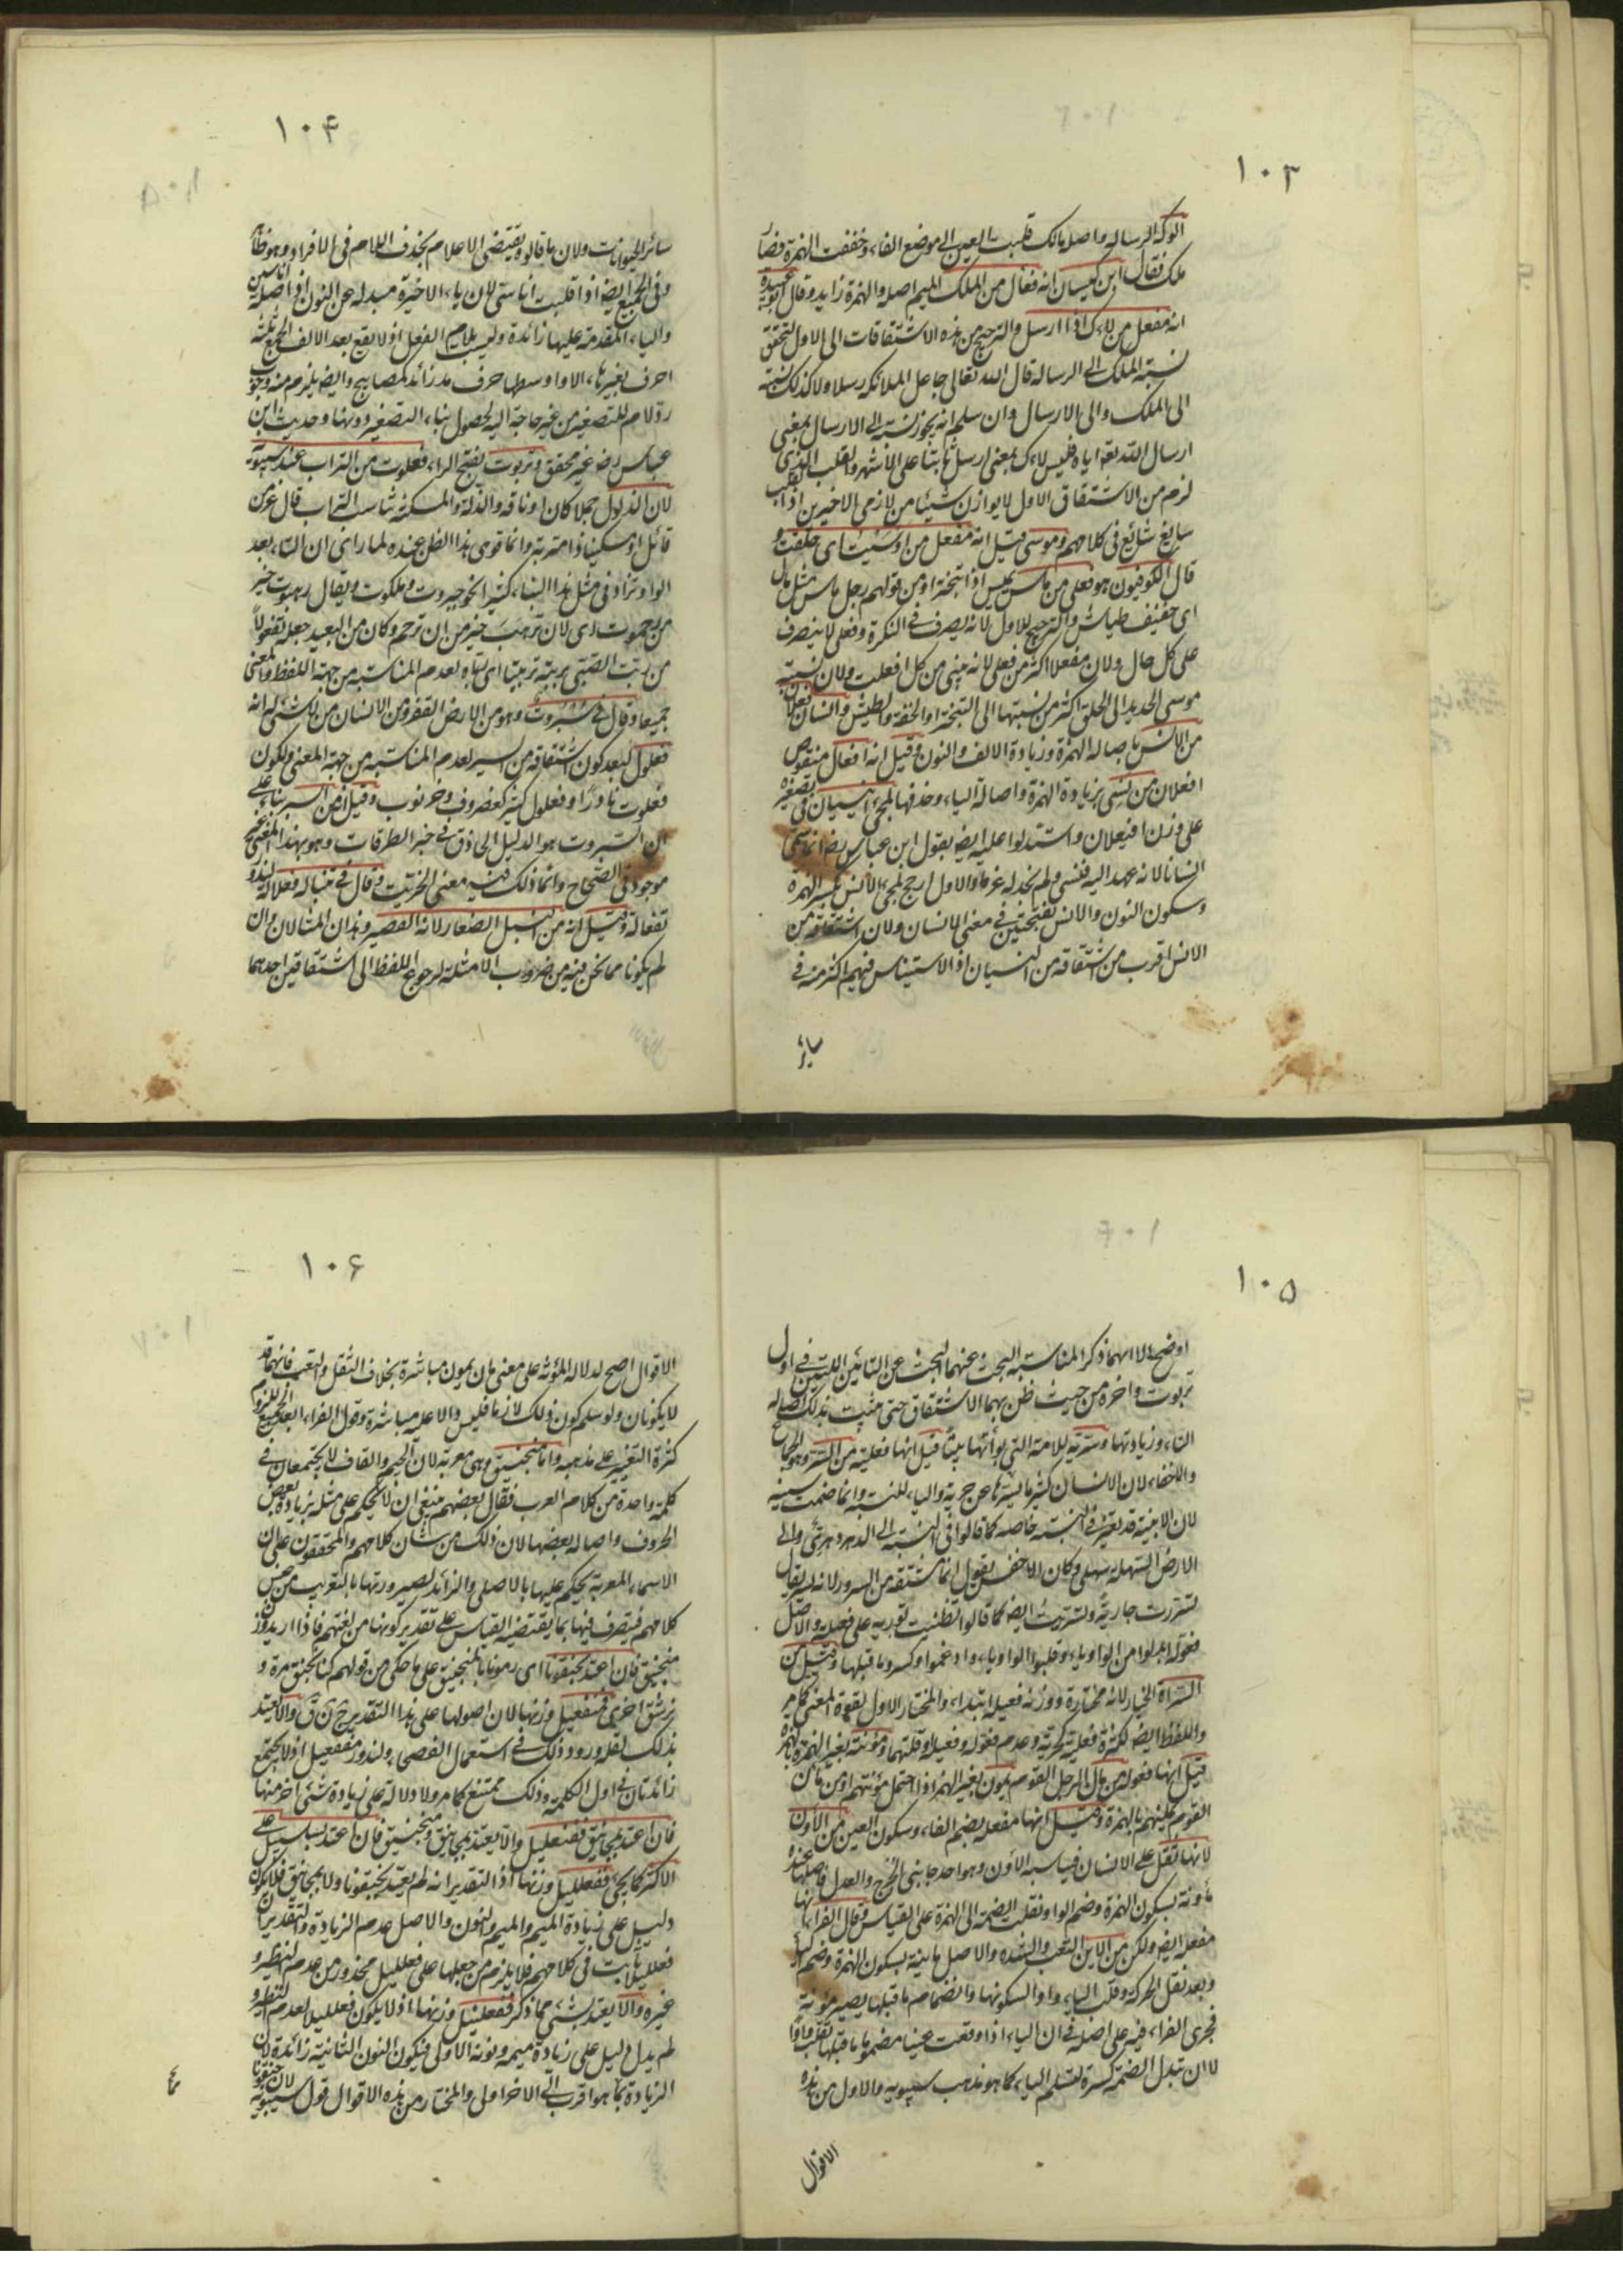 ١٠٣
الوكه الرساله واصله مالك قلبت العين الى موضع الفاء وخففت الهمزة فصار
ملك فقال ابن كيسان انه فعال من الملك الميم اصلية والهمزة زايد وقال ابو عبيدة
انه مفعل من لاك اذا ارسل والترجيح من هذه الاشتقاقات الى الاول لتحقق
نسبة الملك الى الرسالة قال الله تعالى جاعل الملائكة رسلا ولا كذلك نسبته
الى الملك والى الارسال وان سلم انه يجوز نسبته الى الارسال بمعنى
ارسال الله تعه اياه فليس لاك بمعنى ارسل ثابتا على الاشهر والقلب الذى
لزم من الاشتقاق الاول لا يوازن شيئا من لازمى الاخيرين اذ القلب
سايغ شائع فى كلامهم وموسى قيل انه مفعل من اوسيت اى حلقت و
قال الكوفيون هو فعلى من ماس يميس اذا تبختر او من قولهم رجل ماس مثل مال
اى خفيف طياش والترجيح للاول لانه يصرف فى النكرة وفعلى لا ينصرف
على كل حال ولان مفعلا اكثر من فعلى لانه يبنى من كل افعلت ولان نسبة
موسى الحديد الى الحلق اكثر من نسبتها الى التبختر او الخفة والطيش وانسان فعلان
من الانس باصالة الهمزة وزيادة الالف والنون وقيل انه افعال منقوص
افعلان من نسى بزيادة الهمزة واصالة الياء وحذفها لمجئ انيسيان فى تصغيره
على وزن افيعلان واستدلوا عليه ايضه بقول ابن عباس رضه انما سمى
انسانا لانه عهد اليه فنسى ولم نجد له عزما والاول ارجح لمجئ الانس بكسر الهمزة
وسكون النون والانس بفتحتين فى معنى الانسان ولان اشتقاقه من
الانس اقرب من اشتقاقه من النسيان اذ الاستيناس فيهم اكثر منه فى
سائر
١٠۴
سائر الحيوانات ولان ما قالوه يقتضى الاعلام بحذف اللام فى الافراد وهو ظاهر
وفى الجمع ايضه اذا قلبت اناسى لان ياءه الاخيرة مبدلة عن النون اذ اصله اناسين
والياء المتقدمة عليها زائدة وليست بلام الفعل اذ لا يقع بعد الالف الجمع ثلثة
احرف بغير هاء الا واوسطها حرف مد زائد كمصابيح وايضه يلزم منه وجوب
رد لام للتصغير من غير حاجة اليه لحصول بناء التصغير دونها وحديث ابن
عباس رضه غير محقق وتربوت بفتح الراء فعلوت من التراب عند سيبويه
لان الذلول جملا كان او ناقة والذلة والمسكنة تناسب التراب قال عز من
قائل او مسكينا ذا متربة وانما قوى هذا الظن عنده لما راى ان التاء بعد
الواو تزاد فى مثل هذا البناء كثيرا نحو جبروت وملكوت ويقال رهبوت خير
من رحموت اى لان ترهب خير من ان ترحم وكان من البعيد جعله تفعولا
من ربت الصبى يربته تربيتا اى رباه لعدم المناسبة من جهة اللفظ والمعنى
جميعا وقال فى سبروت وهو من الارض القفر ومن الانسان من لا شئ له انه
فعلول لبعد كون اشتقاقه من السير لعدم المناسبة من جهة المعنى ولكون
فعلوت نادرا وفعلول كثير كعضروف وخرنوب وقيل من السبر بناء على
ان السبروت هو الدليل الحاذق فى خبر الطرقات وهو بهذا المعنى غير
موجود فى الصحاح وانما ذلك فيه معنى الخريت وقال فى تنبالة فعلالة لندور
تفعالة وقيل انه من النبل الصغار لانه القصير وهذان المثالان وان
لم يكونا مما نحن فيه من ضروب الامثلة لرجوع اللفظ الى اشتقاقين احدهما
١٠۵
اوضح الا انهما ذكرا لمناسبة البحث عنهما البحث عن التائين اللتين فى اول
تربوت واخره من حيث ظن بهما الاشتقاق حتى يثبت بذلك اصالة
التاء وزيادتها وسرية للامة التى بوأتها بيتا قيل انها فعلية من السر وهو الجماع
والاخفاء لان الانسان كثيرا ما يسرها عن حرية والياء للنسبة وانما ضمت سينه
لان الابنية قد تغير فى النسبة خاصة كما قالوا فى النسبة الى الدهر دهرى والى
الارض السهلة سهلى وكان الاخفش يقول انها مشتقة من السرور لانه يسر يقال
تسررت جارية وتسريت ايضه كما قالوا تظنيت تورية على فعيلة والاصل
فعولة ابدلوا من الواو ياء وقلبوا الواو ياء وادغموا وكسروا ما قبلها وقيل من
السراة الخيار لانها مختارة ووزنه فعيلة ابتداء والمختار الاول لقوة المعنى كما مر
واللفظ ايضه لكثرة فعلية كحرية وعدم فعولة وفعيلة وقلتهما ومؤنة بغير الهمزة وبالهمزة
قيل انها فعولة من مان الرجل القوم يمون بغير الهمز اذا احتمل مؤنتهم او من مأن
القوم يمأنهم بالهمزة وقيل انها مفعلة بضم الفاء وسكون العين من الاون
لانها ثقل على الانسان فيناسبه الاون وهو احد جانبى الخرج والعدل فاصلها عنده
مأونة بسكون الهمزة وضم الواو نقلت الضمة الى الهمزة على القياس وقال الفراء انها
مفعلة ايضه ولكن من الاين التعب والشدة والاصل مأينة بسكون الهمزة وضم الياء
وبعد نقل الحركة وقلب الياء واوا لسكونها وانضمام ما قبلها يصير مؤنة
فجرى الفراء فيه على اصله فى ان الياء اذا وقعت عينا مضموما ما قبلها تقلب واوا
لا ان تبدل الضمة كسرة لتسلم الياء كما هو مذهب سيبويه والاول من هذه
الاقوال
١٠۶
الاقوال اصح لدلالة المؤنة على معنى مان يمون مباشرة بخلاف الثقل والتعب فانهما قد
لا يكونان ولو سلم كون ذلك لازما فليس دالا عليه مباشرة وقول الفراء ابعد الجميع للزوم
كثرة التغيير على مذهبه واما منجنيق وهى معربة لان الجيم والقاف لا يجتمعان فى
كلمة واحدة من كلام العرب فقال بعضهم ينبغى ان لا يحكم على مثله بزيادة بعض
الحروف واصالة بعضها لان ذلك من شان كلامهم والمحققون على ان
الاسماء المعربة يحكم عليها بالاصلى والزائد لصيرورتها بالتعريب من جنس
كلامهم فيتصرف فيها بما يقتضيه القياس على تقدير كونها من لغتهم فاذا اريد وزن
منجنيق فان اعتد بجنقونا اى رمونا بالمنجنيق على ما حكى من قولهم كنا نجنق مرة و
نرشق اخرى فمنفعيل وزنها لان اصولها على هذا التقدير ج ن ق والا يعتد
بذلك لقلة ورود ذلك فى استعمال الفصحى ولندور منفعيل اذ لا يجتمع
زائدتان فى اول الكلمة وذلك ممتنع كما مر ولا دلالة على زيادة شئ اخر منها
فان اعتد بمجانيق ففنعليل والا يعتد بمجانيق ومنجنيق فان اعتد بسلسبيل على
الاكثر كما يجئ ففعلليل وزنها اذ التقدير انه لم يعتد بجنقونا ولا بمجانيق فلا يكون
دليل على زيادة الميم والنون والاصل عدم الزيادة والتقدير ان
فعلليلا ثابت فى كلامهم فلا يلزم من جعلها على فعلليل محذور من عدم النظير و
غيره والا يعتد بشئ مما ذكر ففعلنيل وزنها اذ لا يكون فعلليلا لعدم النظير و
لم يدل دليل على زيادة ميمه ونونه الاولى فيكون النون الثانية زائدة لان
الزيادة بما هو اقرب الى الاخر اولى والمختار من هذه الاقوال قول سيبويه لان جنقونا